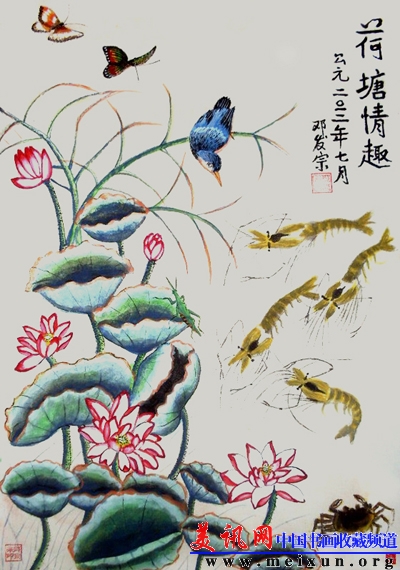 荷塘情趣
公元二〇一二年七月
邓发宗
美讯网 中国书画收藏频道
www.meixun.org